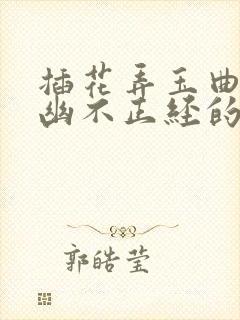 插花弄玉曲
幽不正经的
郭皓莹